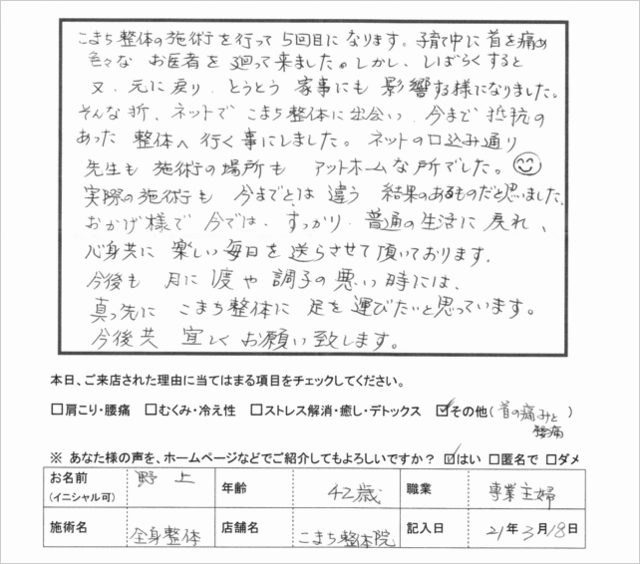 こまち整体の施術を行って5回目になります。子育て中に首を痛め
色々な お医者を廻って来ました。しかし、しばらくすると
又、元に戻り、とうとう 家事にも 影響する様になりました。
そんな折、ネットで こまち整体に出会い、今まで 抵抗の
あった 整体へ行く事にしました。ネットの口込み通り
先生も 施術の場所も アットホームな所でした。
実際の施術も 今までとは 違う 結果のあるものだと思いました。
おかげ様で 今では、すっかり、普通の生活に戻れ、
心身共に 楽しい毎日を送らさせて頂いております。
今後も 月に1度や 調子の悪い時には、
真っ先に こまち整体に 足を運びたいと思っています。
今後共 宜しくお願い致します。
本日、ご来店された理由に当てはまる項目をチェックしてください。
□肩こり・腰痛 □むくみ・冷え性 □ストレス解消・癒し・デトックス ☑その他(首の痛みと腰痛)
※ あなた様の声を、ホームページなどでご紹介してもよろしいですか? ☑はい □匿名で □ダメ
お名前(イニシャル可) 野上 年齢 42歳 職業 専業主婦
施術名 全身整体 店舗名 こまち整体院 記入日 21年3月18日